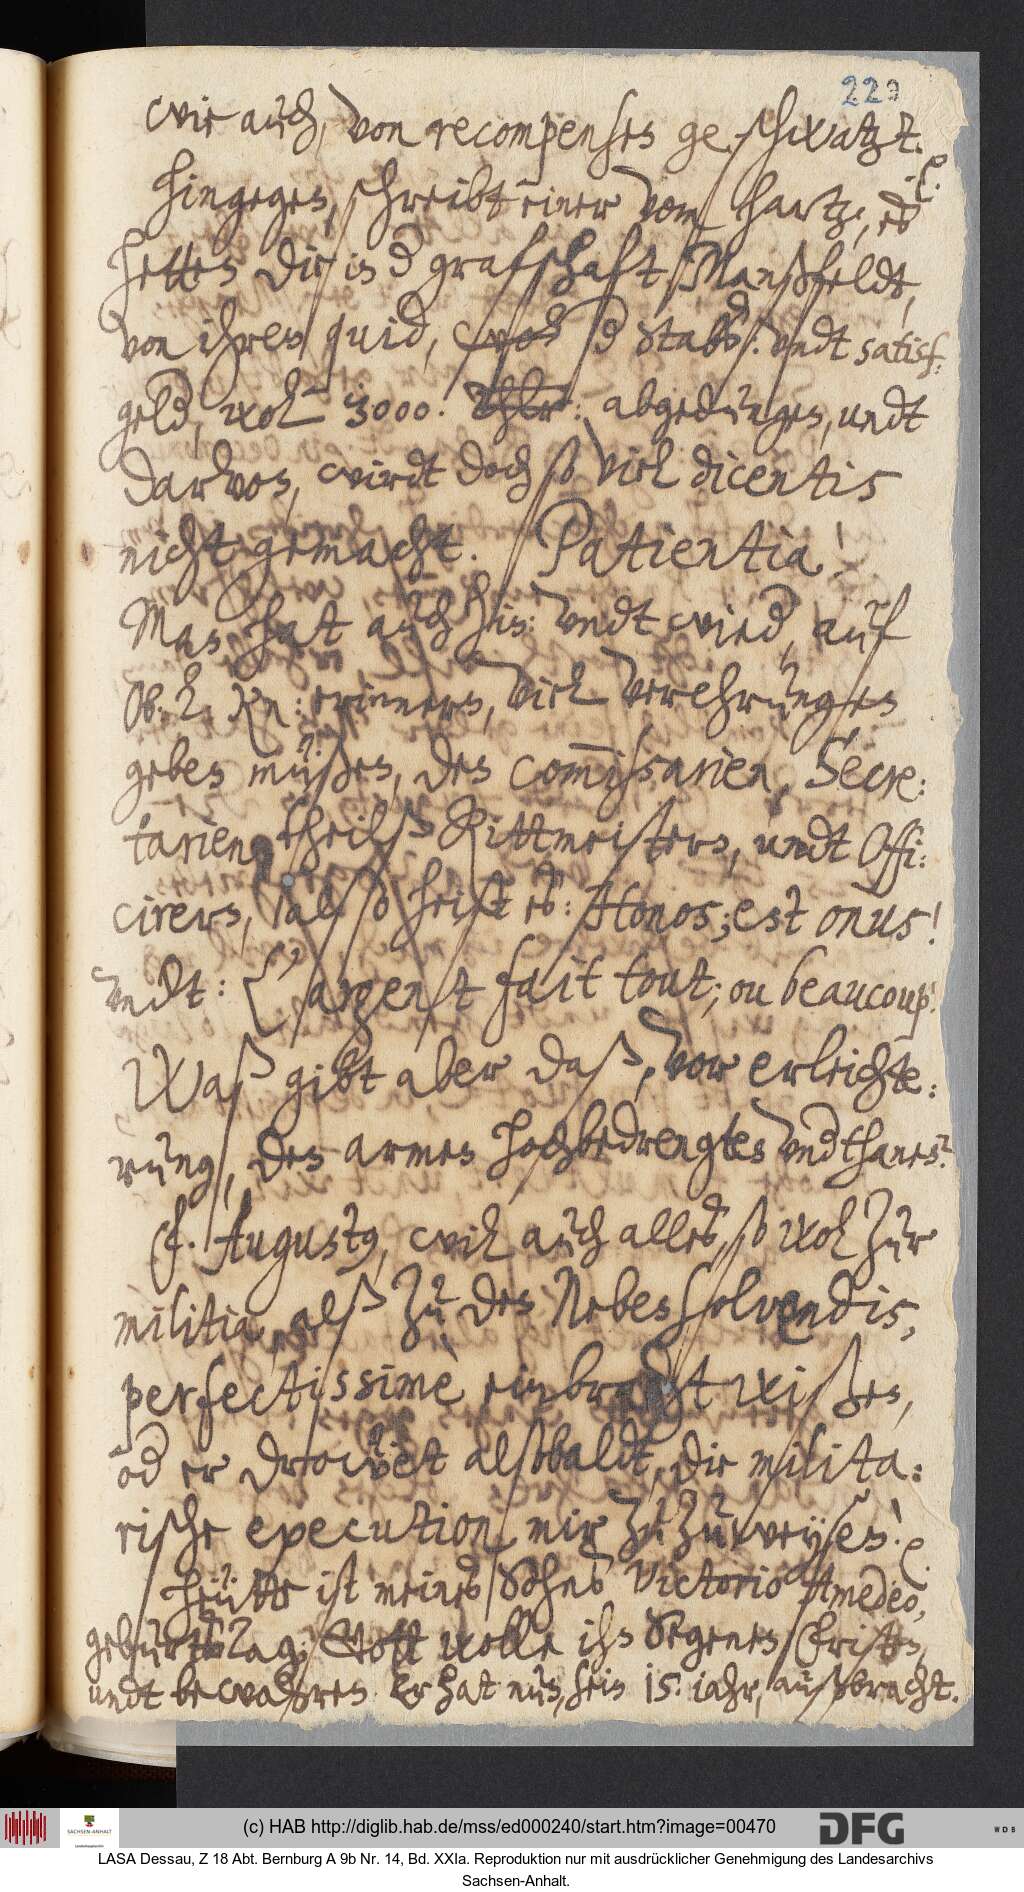 229
wie auch, von recompenses geschwatzt. p.
Hingegen, schreibt einer vom Hartz, es
hetten die in der grafschaft Manßfeldt,
von ihren quid, der Stabs: undt satisf:
geld, wol 3000. Thlr: abgedungen, undt
darvon, wirdt doch so viel dicentis
nicht gemacht. Patientia!
Man hat auch hin: vndt wied, auf
Ob. L. Kn: erinnern, viel verehrungen
geben müßen, den Commissarien, Secre:
tarien, theilß Rittmeistern, undt Offi:
cirern, also heist es: Honos; est onus!
vndt: L'argent fait tout; ou beaucoup!
Waß gibt aber daß, vor erleichte:
rung, den armen hochbedrengten Vndthanen?
F. Augustus, will auch alles, so wol zur
militia, alß zu den Nebensolvendis,
perfectissimè einbracht wißen,
od er drowet alsobaldt, die milita:
rische execution, mir zu zuweysen! p.
Heütte ist meines Sohns Victorio Amedeo,
geburtsTag; Gott wolle ihn Segenen, fristen,
undt bewahren. Er hat nun, sein 15. iahr, außbracht.
(c) HAB http://diglib.hab.de/mss/ed000240/start.htm?image=00470
DFG
WDB
SACHSEN-ANHALT
LASA Dessau, Z 18 Abt. Bernburg A 9b Nr. 14, Bd. XXIa. Reproduktion nur mit ausdrücklicher Genehmigung des Landesarchivs
Sachsen-Anhalt.